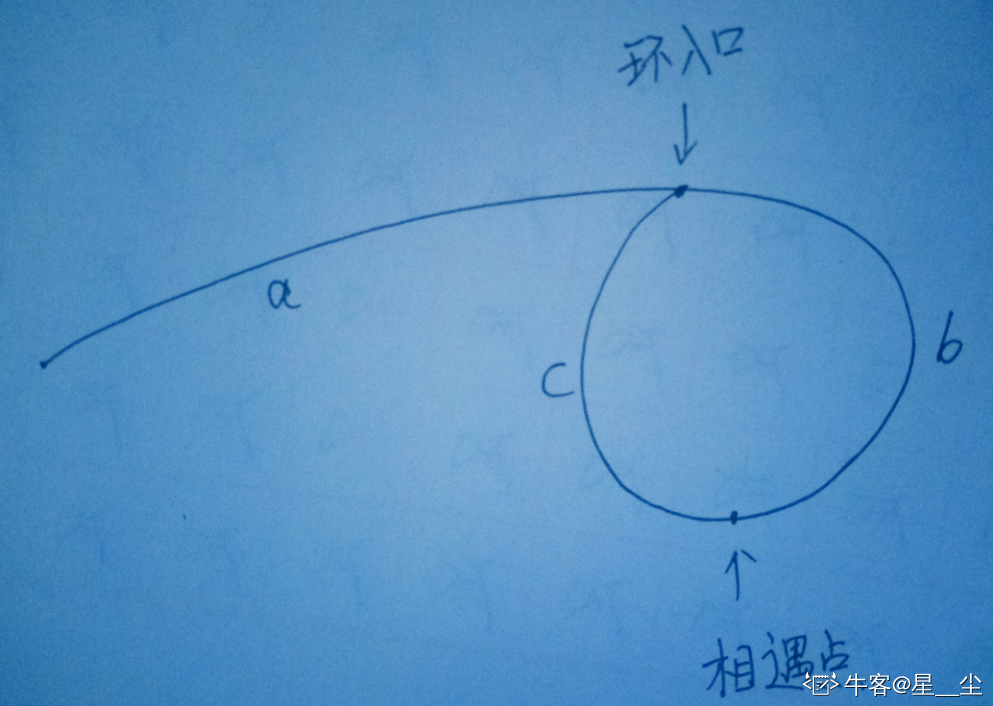 环入口
a
b
c
相遇点
牛客@星__尘